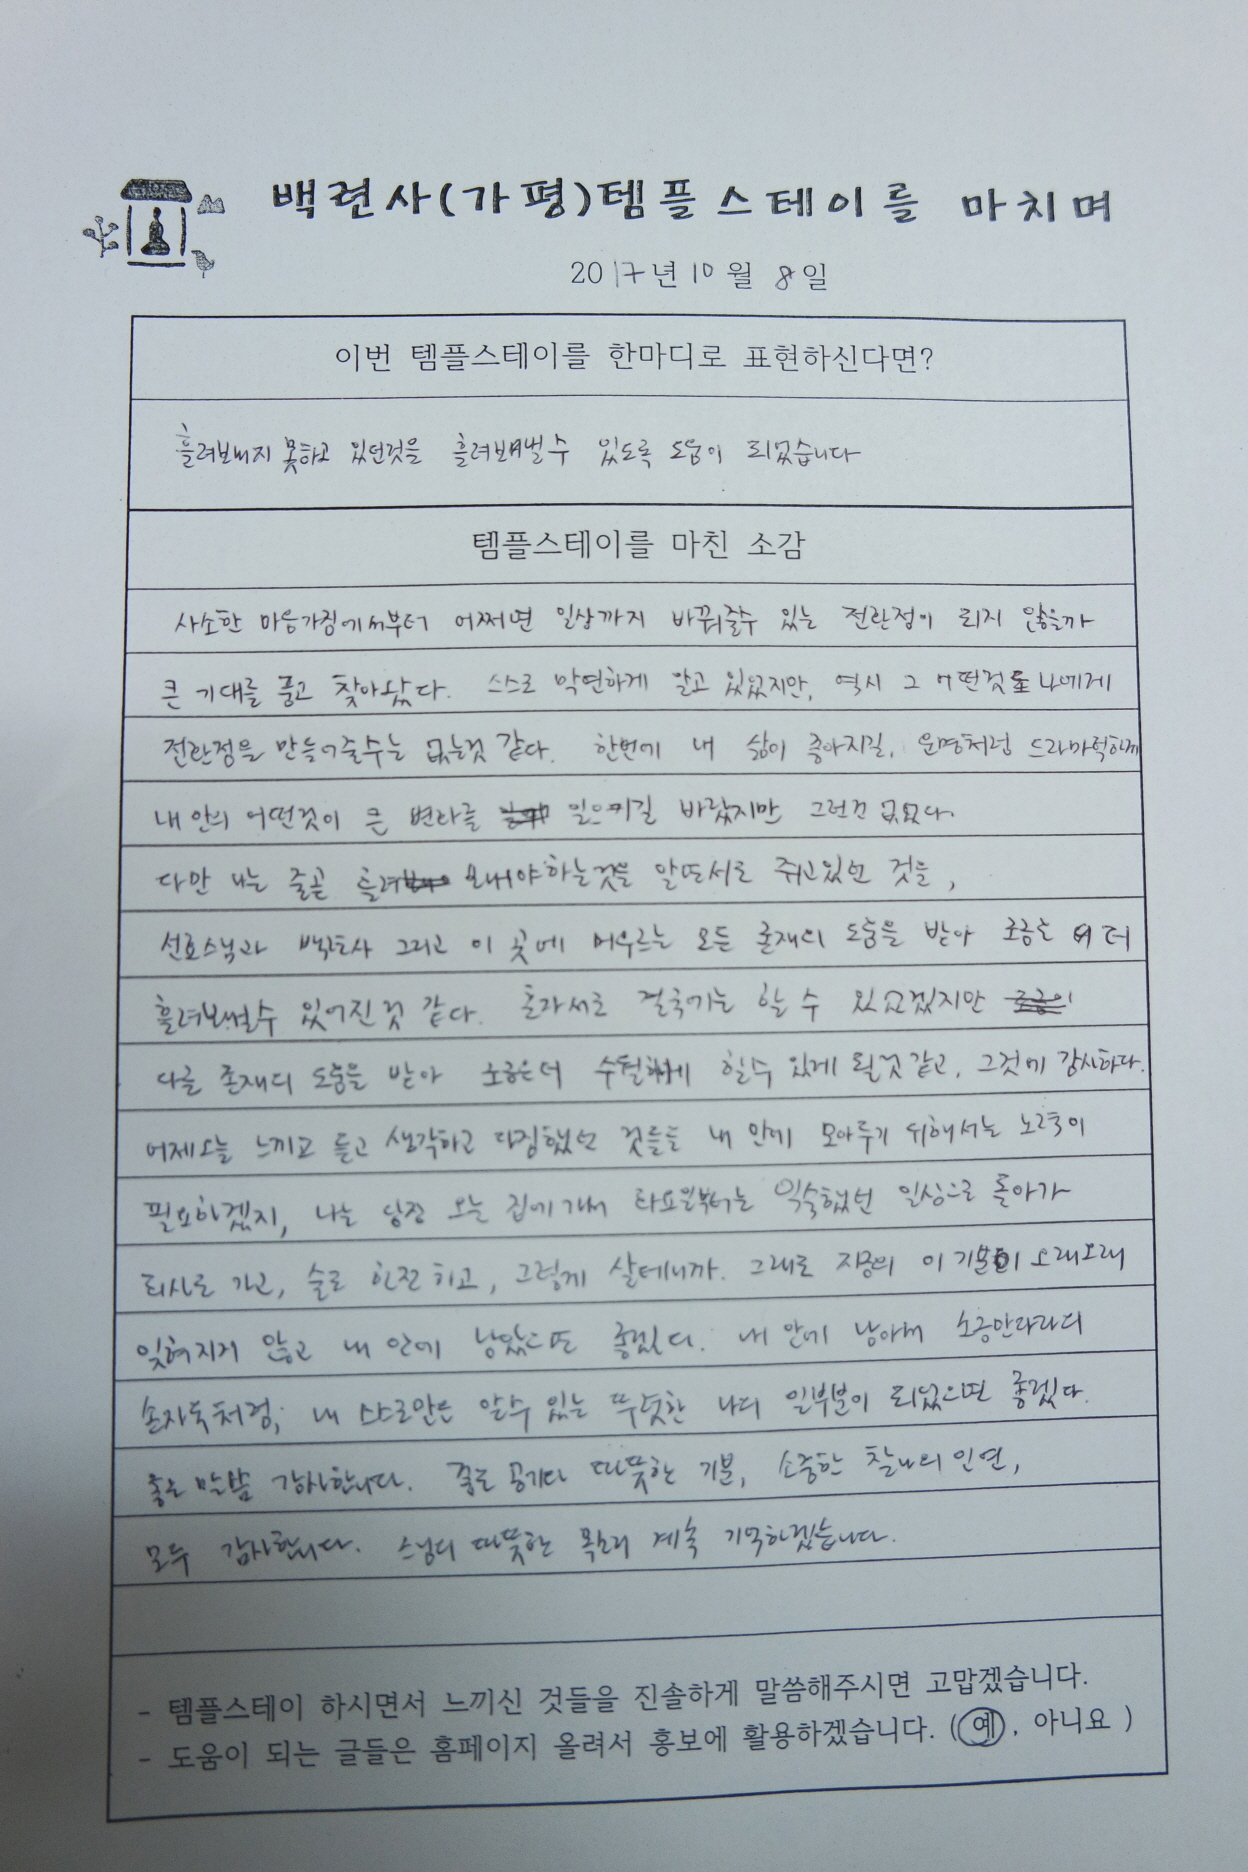 백련사(가평)템플스테이를 마치며
2017년 10월 8일
이번 템플스테이를 한마디로 표현하신다면?
흘려보내지 못하고 있던것을 흘려보낼수 있도록 도움이 되었습니다
템플스테이를 마친 소감
사소한 마음가짐에서부터 어쩌면 일상까지 바꿔줄수 있는 전환점이 되지 않을까
큰 기대를 품고 찾아왔다. 스스로 막연하게 알고 있었지만, 역시 그 어떤것도 나에게
전환점을 만들어줄수는 없는것 같다. 한번에 내 삶이 좋아지길, 운명처럼 드라마틱하게
내 안의 어떤것이 큰 변화를 일으키길 바랐지만 그런건 없었다.
다만 나는 줄곧 흘려보내야하는것을 알면서도 쥐고있던 것을,
선효스님과 백련사 그리고 이 곳에 머무르는 모든 존재의 도움을 받아 조금은 더
흘려보낼수 있어진것 같다. 혼자서도 결국에는 할 수 있었겠지만
다른 존재의 도움을 받아 조금은더 수월하게 할수 있게 될것같고, 그것에 감사하다.
어제오늘 느끼고 듣고 생각하고 다짐했던 것들을 내 안에 모아두기 위해서는 노력이
필요하겠지, 나는 당장 오늘 집에가서 화요일부터는 익숙했던 일상으로 돌아가
회사로 가고, 술도 한잔 하고, 그렇게 살테니까. 그래도 지금의 이 기분이 오래오래
잊혀지지 않고 내 안에 남았으면 좋겠다. 내 안에 남아서 소중한
손자욱처럼, 내 스스로만은 알수 있는 뚜렷한 나의 일부분이 되었으면 좋겠다.
좋은 말씀 감사합니다. 좋은 공기와 따뜻한 기분, 소중한 찰나의 인연,
모두 감사합니다. 스님의 따뜻한 목소리 계속 기억하겠습니다.
- 템플스테이 하시면서 느끼신 것들을 진솔하게 말씀해주시면 고맙겠습니다.
- 도움이 되는 글들은 홈페이지 올려서 홍보에 활용하겠습니다. (예, 아니요 )